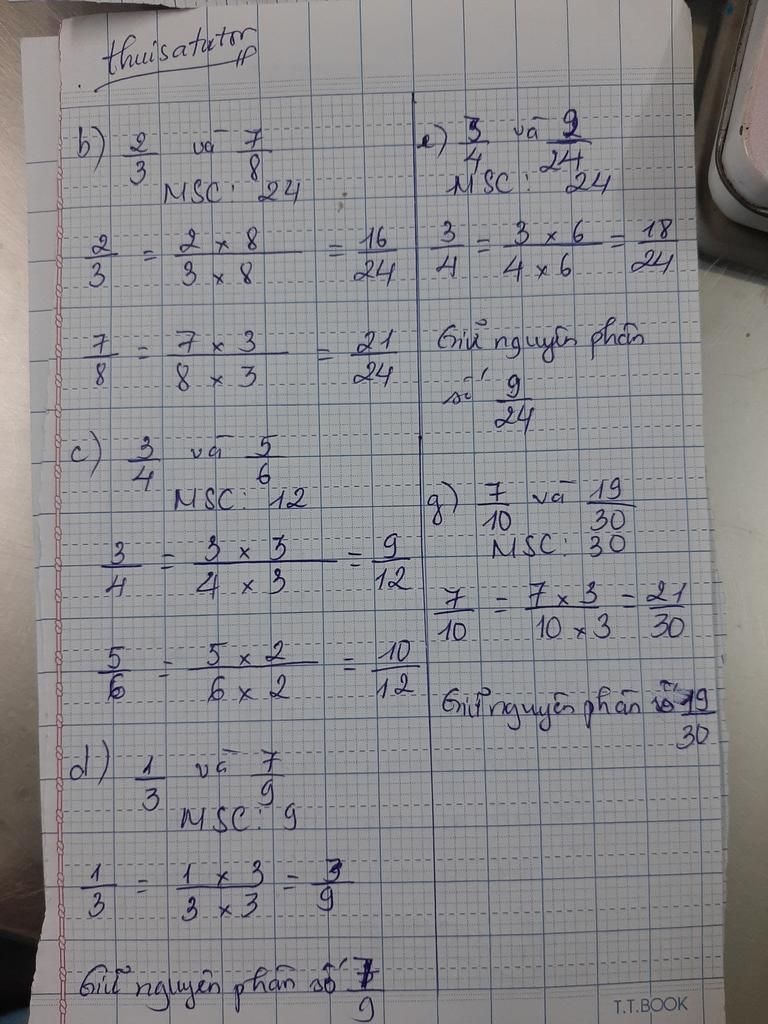 thuisatutor
b) 2/3 và 7/8
MSC: 24
2/3 = 2 x 8 / 3 x 8 = 16/24
7/8 = 7 x 3 / 8 x 3 = 21/24
c) 3/4 và 5/6
MSC: 12
3/4 = 3 x 3 / 4 x 3 = 9/12
5/6 = 5 x 2 / 6 x 2 = 10/12
d) 1/3 và 7/9
MSC: 9
1/3 = 1 x 3 / 3 x 3 = 3/9
Giữ nguyên phân số 7/9
e) 3/4 và 9/24
MSC: 24
3/4 = 3 x 6 / 4 x 6 = 18/24
Giữ nguyên phân
số 9/24
g) 7/10 và 19/30
MSC: 30
7/10 = 7 x 3 / 10 x 3 = 21/30
Giữ nguyên phân số 19/30
T.T.BOOK